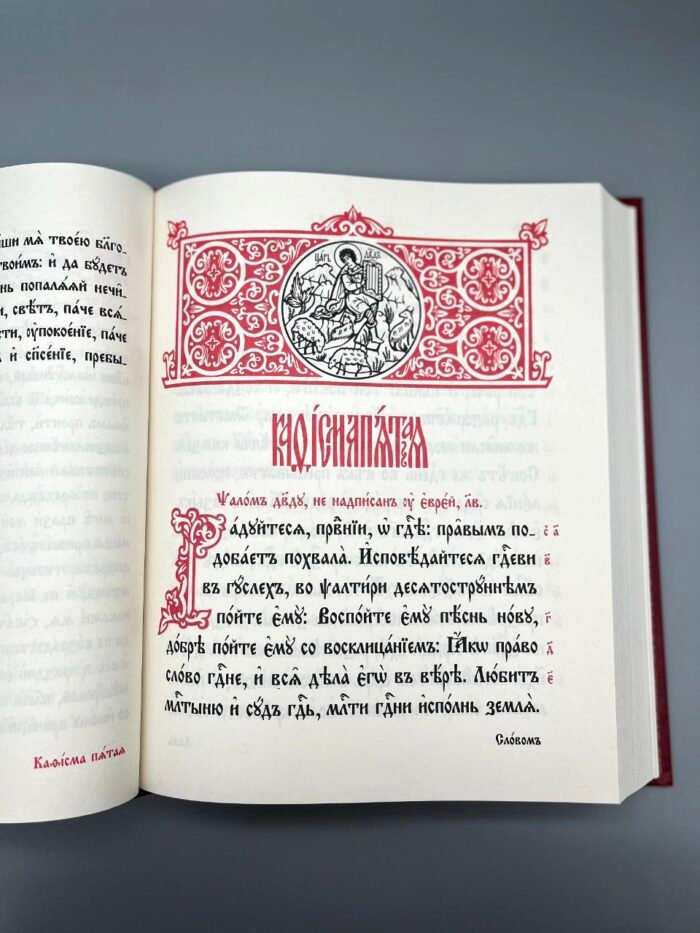 ши мѧ̀ твоею бл҃го_
твои̑мъ: и҆ да бꙋ́детъ
нь попалѧ́ѧй нечи_
и, свѣ́тъ, па́че всѧ_
сти, ᲂу҆покое́нїе, па́че
и҆ сп҃се́нїе, пребы_
Каѳі́сма пѧ́таѧ
ЦАРЬ ДВ҃ДЪ
КАѲІ́СМА ПѦ́ТАѦ
Ѱало́мъ дв҃дꙋ, не надпи́санъ ᲂу҆ є҆врє́й, л҃в.
Ра́дꙋйтесѧ, првⷣнїи, ѡ҆ гдⷭ҇ѣ: пра̑вымъ по_ с҃ а҃
добае́тъ похвала̀. И҆сповѣ́дайтесѧ гдⷭ҇еви в҃
въ гꙋ́слехъ, во ѱалти́ри десѧтострꙋ́ннѣмъ
по́йте є҆мꙋ̀: Воспо́йте є҆мꙋ̀ пѣ́снь но́вꙋ, г҃
до́брѣ по́йте є҆мꙋ̀ со восклица́нїемъ: Ꙗ҆́кѡ пра́во д҃
сло́во гдⷭ҇не, и҆ всѧ̑ дѣла̀ є҆гѡ̀ въ вѣ́рѣ. Лю́битъ є҃
млⷭ҇тыню и҆ сꙋ́дъ гдⷭ҇ь, млⷭ҇ти гдⷭ҇ни и҆спо́лнь землѧ̀.
Сло́вомъ